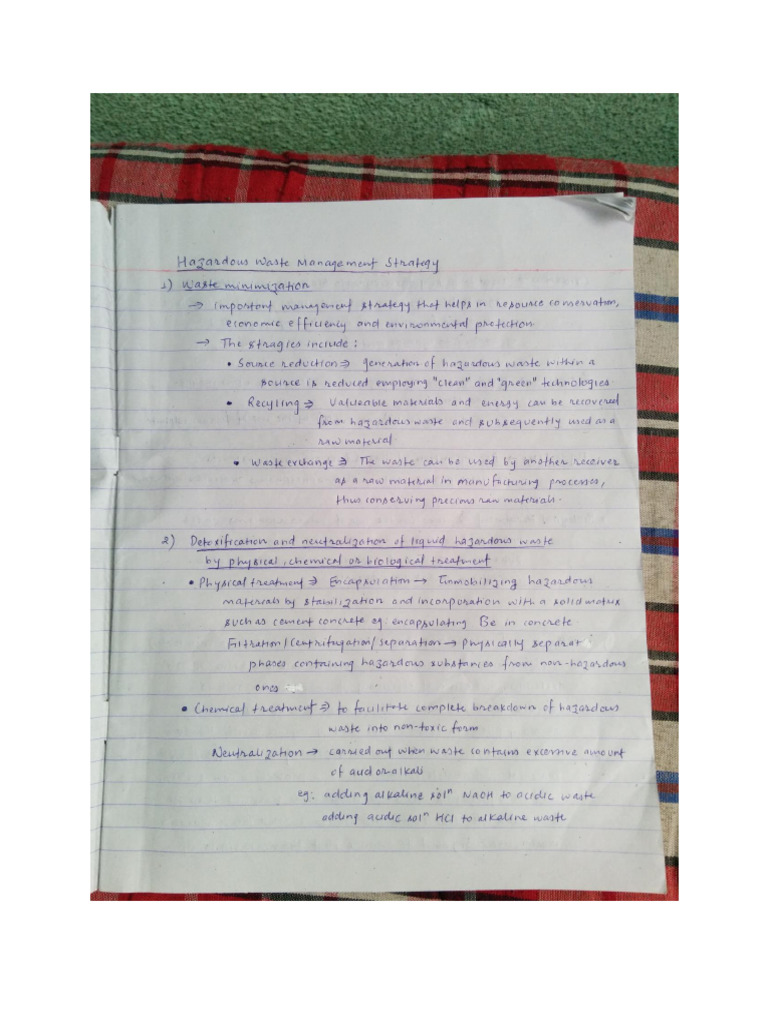 Hazardous Waste Management Strategy
1) Waste minimization
→ Important management strategy that helps in resource conservation,
economic efficiency and environmental protection
→ The stragies include :
• Source reduction ⇒ generation of hazardous waste within a
source is reduced employing "clean" and "green" technologies.
• Recyling ⇒ Valueable materials and energy can be recovered
from hazardous waste and subsequently used as a
raw material
• Waste exchange ⇒ The waste can be used by another receiver
as a raw material in manufacturing processes,
thus conserving precious raw materials.
2) Detoxification and neutralization of liquid hazardous waste
by physical, chemical or biological treatment
• Physical treatment ⇒ Encapsulation → Immobilizing hazardous
materials by stabilization and incorporation with a solid matrix
such as cement concrete eg: encapsulating Be in concrete
Filtration/Centrifugation/separation → Physically separat
phases containing hazardous substances from non-hazardous
ones
• Chemical treatment ⇒ to facilitate complete breakdown of hazardous
waste into non-toxic form
Neutralization → carried out when waste contains excessive amount
of acid or alkali
eg: adding alkaline solⁿ NaOH to acidic waste
adding acidic solⁿ HCl to alkaline waste